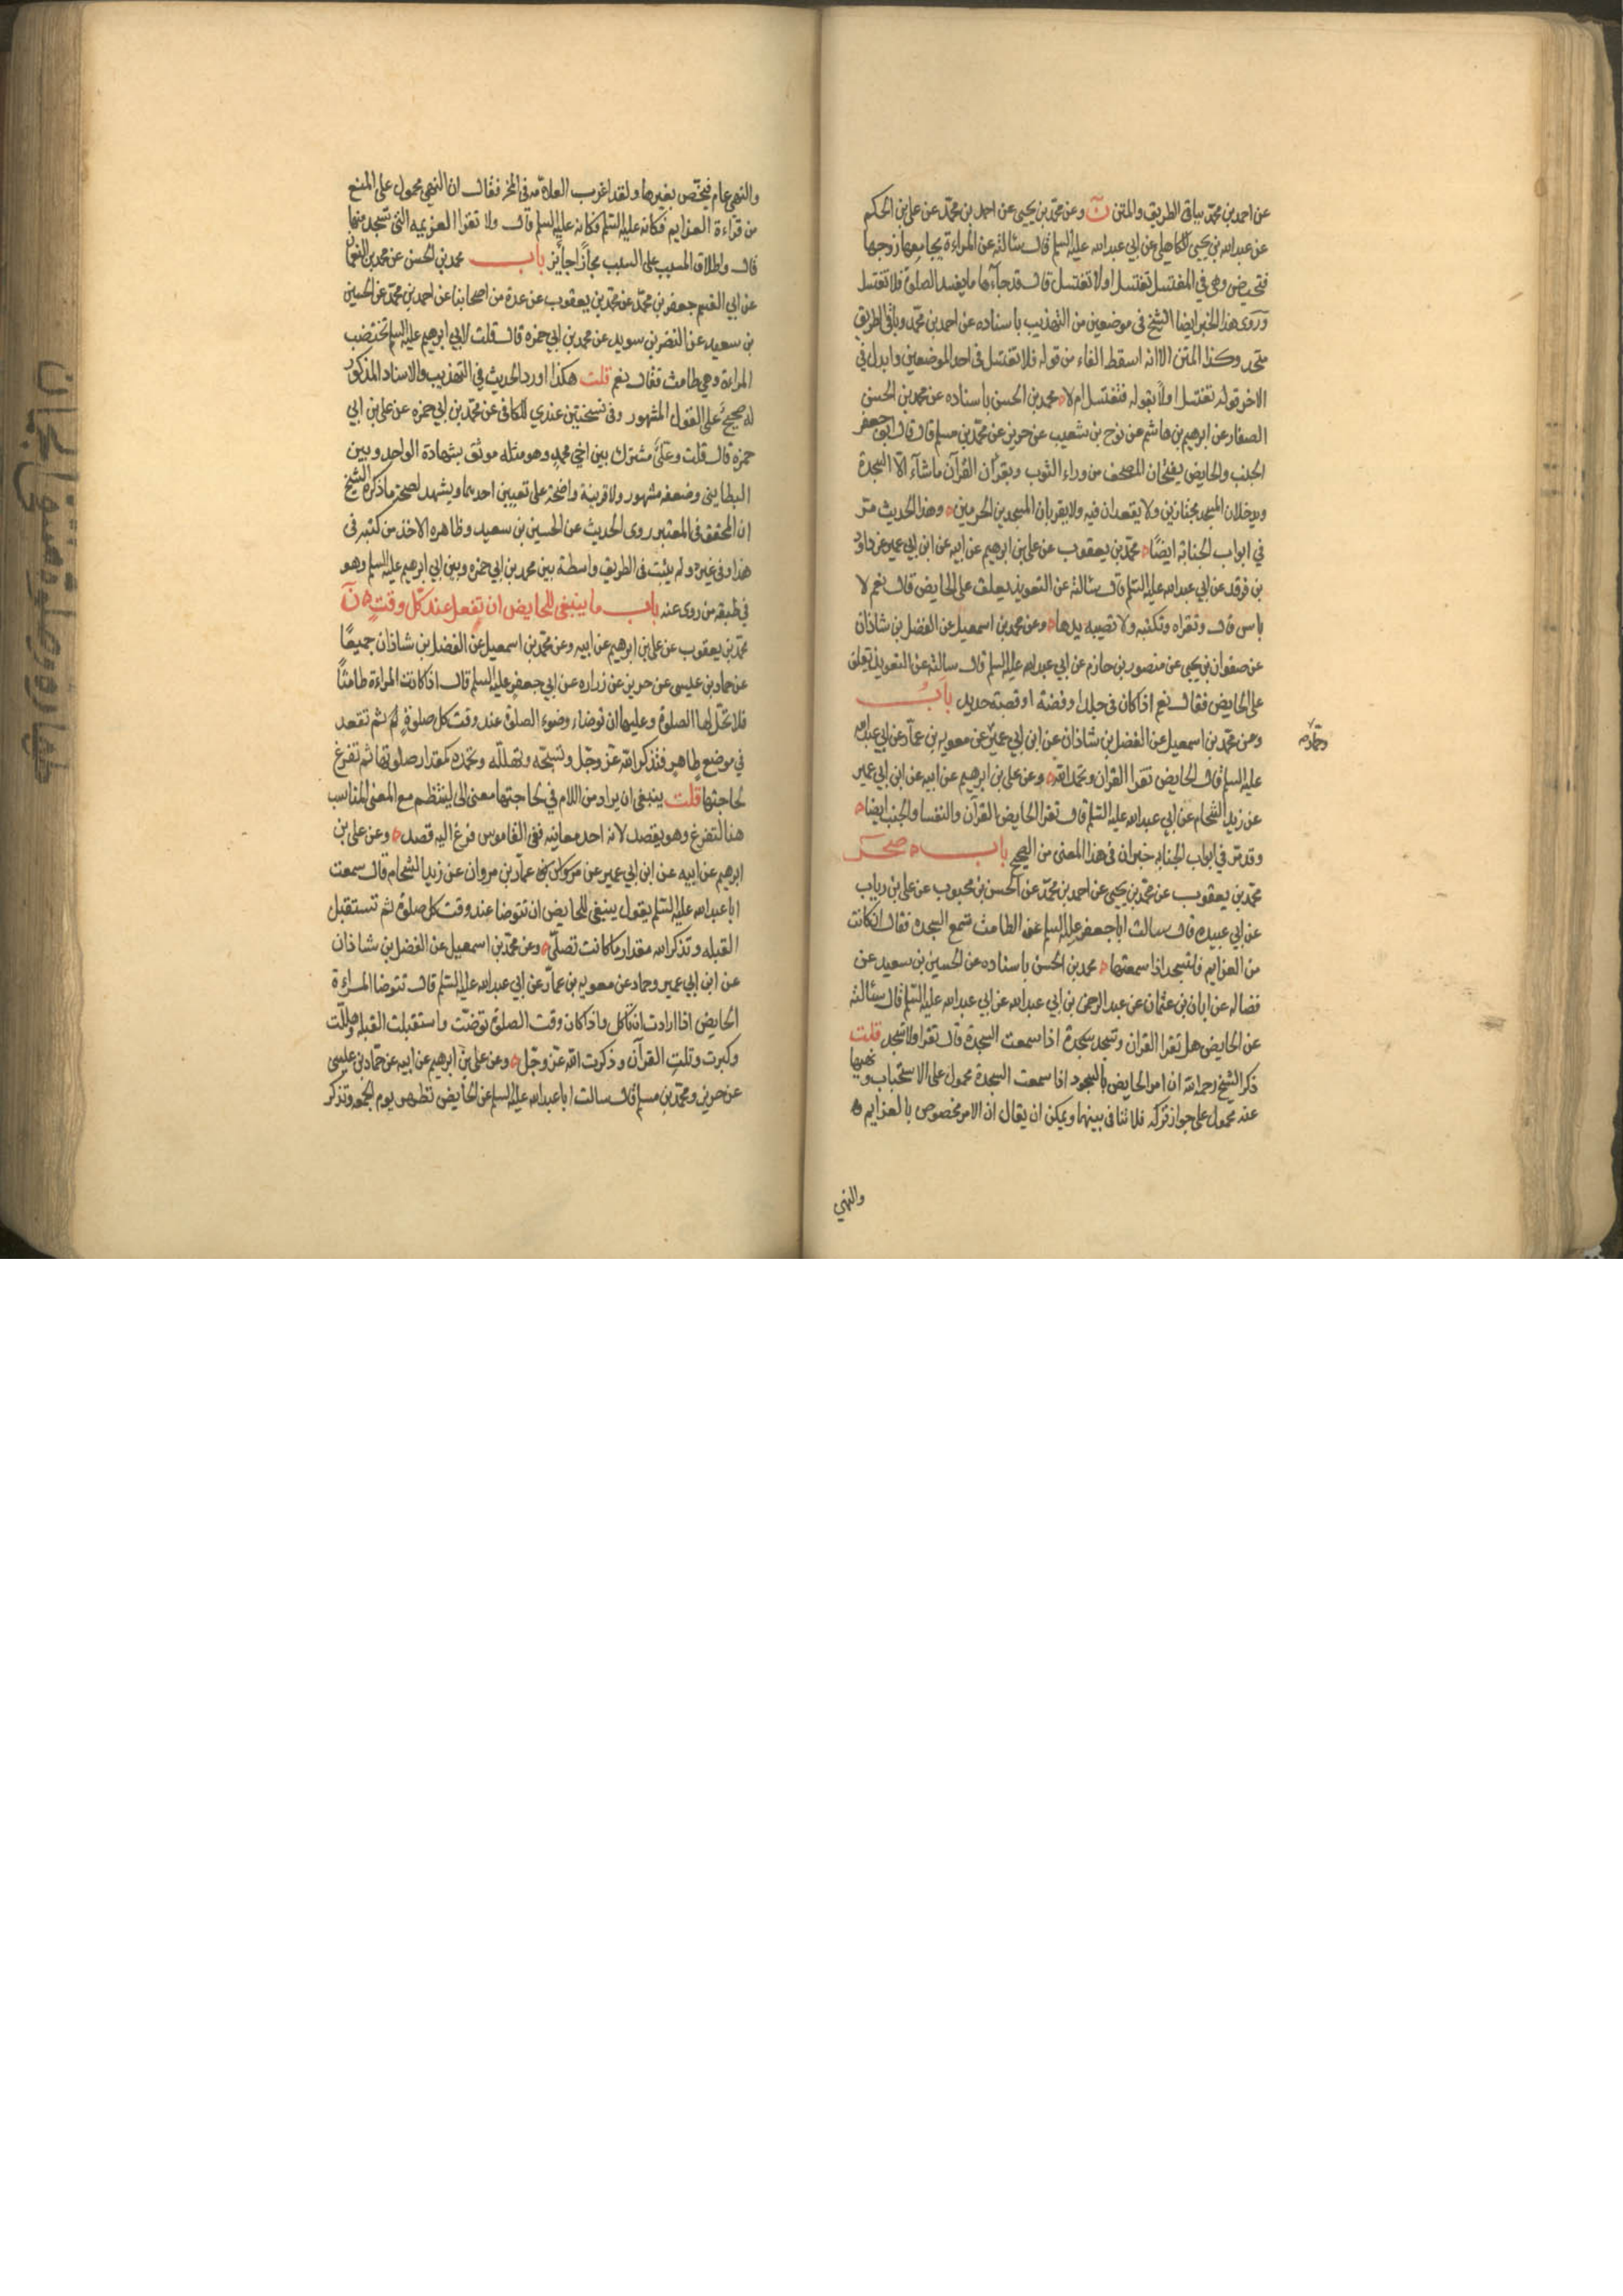 عن احمد بن محمد بباقى الطريق والمتن ن وعن محمد بن يحيى عن احمد بن محمد عن على بن الحكم
عن عبدالله بن يحيى الكاهلى عن ابى عبدالله عليه السلم قال سئالته عن المراءة يجامعها زوجها
فتحيض وهى في المغتسل تغتسل اولا تغتسل قال قد جاءها ما يفسد الصلوة فلا تغتسل
وروى هذا الخبر ايضا الشيخ فى موضعين من التهذيب باسناده عن احمد بن محمد وباقى الطريق
متحد وكذا المتن الا انه اسقط الفاء من قوله فلا تغتسل فى احد الموضعين وابدل في
الاخر قوله تغتسل اولا بقوله فتغتسل ام لا محمد بن الحسن باسناده عن محمد بن الحسن
الصفار عن ابرهيم بن هاشم عن نوح بن شعيب عن حريز عن محمد بن مسلم قال قال ابو جعفر
الجنب والحايض يفتحان المصحف من وراء الثوب ويقرآن القرآن ما شآء الا السجدة
ويدخلان المسجد مجتازين ولا يقعدان فيه ولا يقربان المسجدين الحرمين وهذا الحديث مر
في ابواب الجنابة ايضًا محمد بن يعقوب عن على بن ابرهيم عن ابيه عن ابن ابي عمير عن داود
بن فرقد عن ابي عبدالله عليه السلم قال سئالته عن التعويذ يعلق على الحايض قال نعم لا
باس قال وتقراه وتكتبه ولا تصيبه يدها وعن محمد بن اسمعيل عن الفضل بن شاذان
عن صفوان بن يحيى عن منصور بن حازم عن ابي عبدالله عليه السلم قال سالته عن التعويذ يعلق
على الحايض فقال نعم اذا كان فى جلد او فضة او قصبة حديد باب
وعن محمد بن اسمعيل عن الفضل بن شاذان عن ابن ابي عمير عن معويه بن عمار عن ابي عبدالله
وحماد
عليه السلم قال الحايض تقرا القران وتحمد الله وعن على بن ابرهيم عن ابيه عن ابن ابي عمير
عن زيد الشحام عن ابي عبدالله عليه السلم قال تقرا الحايض القرآن والنفسا والجنب ايضا
وقد مر فى ابواب الجنابه خبران فى هذا المعنى من الصحيح باب صحر
محمد بن يعقوب عن محمد بن يحيى عن احمد بن محمد عن الحسن بن محبوب عن على بن رياب
عن ابي عبيده قال سالت ابا جعفر عليه السلم عن الطامث تسمع السجده فقال ان كانت
من العزايم فلتسجد اذا سمعتها محمد بن الحسن باسناده عن الحسين بن سعيد عن
فضاله عن ابان بن عثمان عن عبد الرحمن بن ابي عبدالله عن ابي عبدالله عليه السلم قال سئالته
عن الحايض هل تقرا القران وتسجد سجدة اذا سمعت السجدة قال تقرا ولا تسجد قلت
ذكر الشيخ رحمه الله ان امر الحايض بالسجود اذا سمعت السجدة محمول على الاستحباب ونهيها
عنه محمول على جواز تركه فلا تنافى بينهما ويمكن ان يقال ان الامر مخصوص بالعزايم
والنهي
والنهى عام فيختص بغيرها ولقد اغرب العلامه فى المخ فقال ان النهي محمول على المنع
من قراءة العزايم فكانه عليه السلم فكانه عليه السلم قال ولا تقرا العزيمه التى تسجد منها
قال واطلاق المسبب على السبب مجازًا جايز باب محمد بن الحسن عن محمد بن النعمان
عن ابي القسم جعفر بن محمد عن محمد بن يعقوب عن عدة من اصحابنا عن احمد بن محمد عن الحسين
بن سعيد عن النضر بن سويد عن محمد بن ابي حمزه قال قلت لابي ابرهيم عليه السلم تختضب
المراءة وهى طامث فقال نعم قلت هكذا اورد الحديث في التهذيب والاسناد المذكور
له صحيح على القول المشهور وفى نسختين عندي للكافى عن محمد بن ابي حمزه عن على بن ابي
حمزه قال قلت وعلى مشترك بين اخي محمد وهو مثله موثق بشهادة الواحد وبين
البطاينى وضعفه مشهور ولا قرينة واضحة على تعيين احدهما ويشهد لصحة ما ذكره الشيخ
ان المحقق فى المعتبر روى الحديث عن الحسين بن سعيد وظاهره الاخذ من كتبه فى
هذا وفى غيره ولم يثبت فى الطريق واسطة بين محمد بن ابي حمزه وبين ابي ابرهيم عليه السلم وهو
في طبقه من روى عنه باب ما ينبغى للحايض ان تفعل عند كل وقت ن
محمد بن يعقوب عن على بن ابرهيم عن ابيه وعن محمد بن اسمعيل عن الفضل بن شاذان جميعًا
عن حماد بن عيسى عن حريز عن زراره عن ابي جعفر عليه السلم قال اذا كانت المراءة طامثًا
فلا تحل لها الصلوة وعليها ان توضاء وضوء الصلوة عند وقت كل صلوة ثم تقعد
في موضع طاهر فتذكر الله عز وجل وتسبحه وتهلله وتحمده كمقدار صلوتها ثم تفرغ
لحاجتها قلت ينبغى ان يراد من اللام في لحاجتها معنى الى لينتظم مع المعنى المناسب
هنا لتفرغ وهو يقصد لانه احد معانيه ففى القاموس فرغ اليه قصد وعن على بن
ابرهيم عن ابيه عن ابن ابي عمير عن عمار بن مروان عن زيد الشحام قال سمعت
ابا عبدالله عليه السلم يقول ينبغى للحايض ان تتوضا عند وقت كل صلوة ثم تستقبل
القبله وتذكر الله مقدار ما كانت تصلى وعن محمد بن اسمعيل عن الفضل بن شاذان
عن ابن ابي عمير وحماد عن معويه بن عمار عن ابي عبدالله عليه السلم قال تتوضا المراءة
الحايض اذا ارادت ان تاكل واذا كان وقت الصلوة توضت واستقبلت القبله وهللت
وكبرت وتلت القرآن وذكرت الله عز وجل وعن على بن ابرهيم عن ابيه عن حماد بن عيسى
عن حريز ومحمد بن مسلم قال سالت ابا عبدالله عليه السلم عن الحايض تطهر يوم الجمعه وتذكر